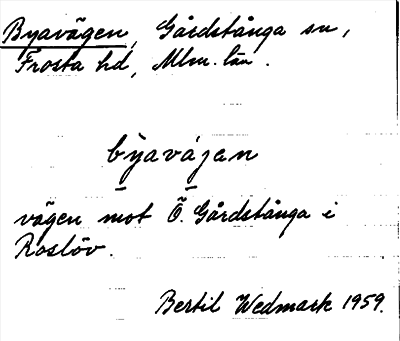 Byavägen, Gårdstånga sn,
Frosta hd, Mlm. län.
byavájen
vägen mot Ö. Gårdstånga i
Roslöv.
Bertil Wedmark 1959.